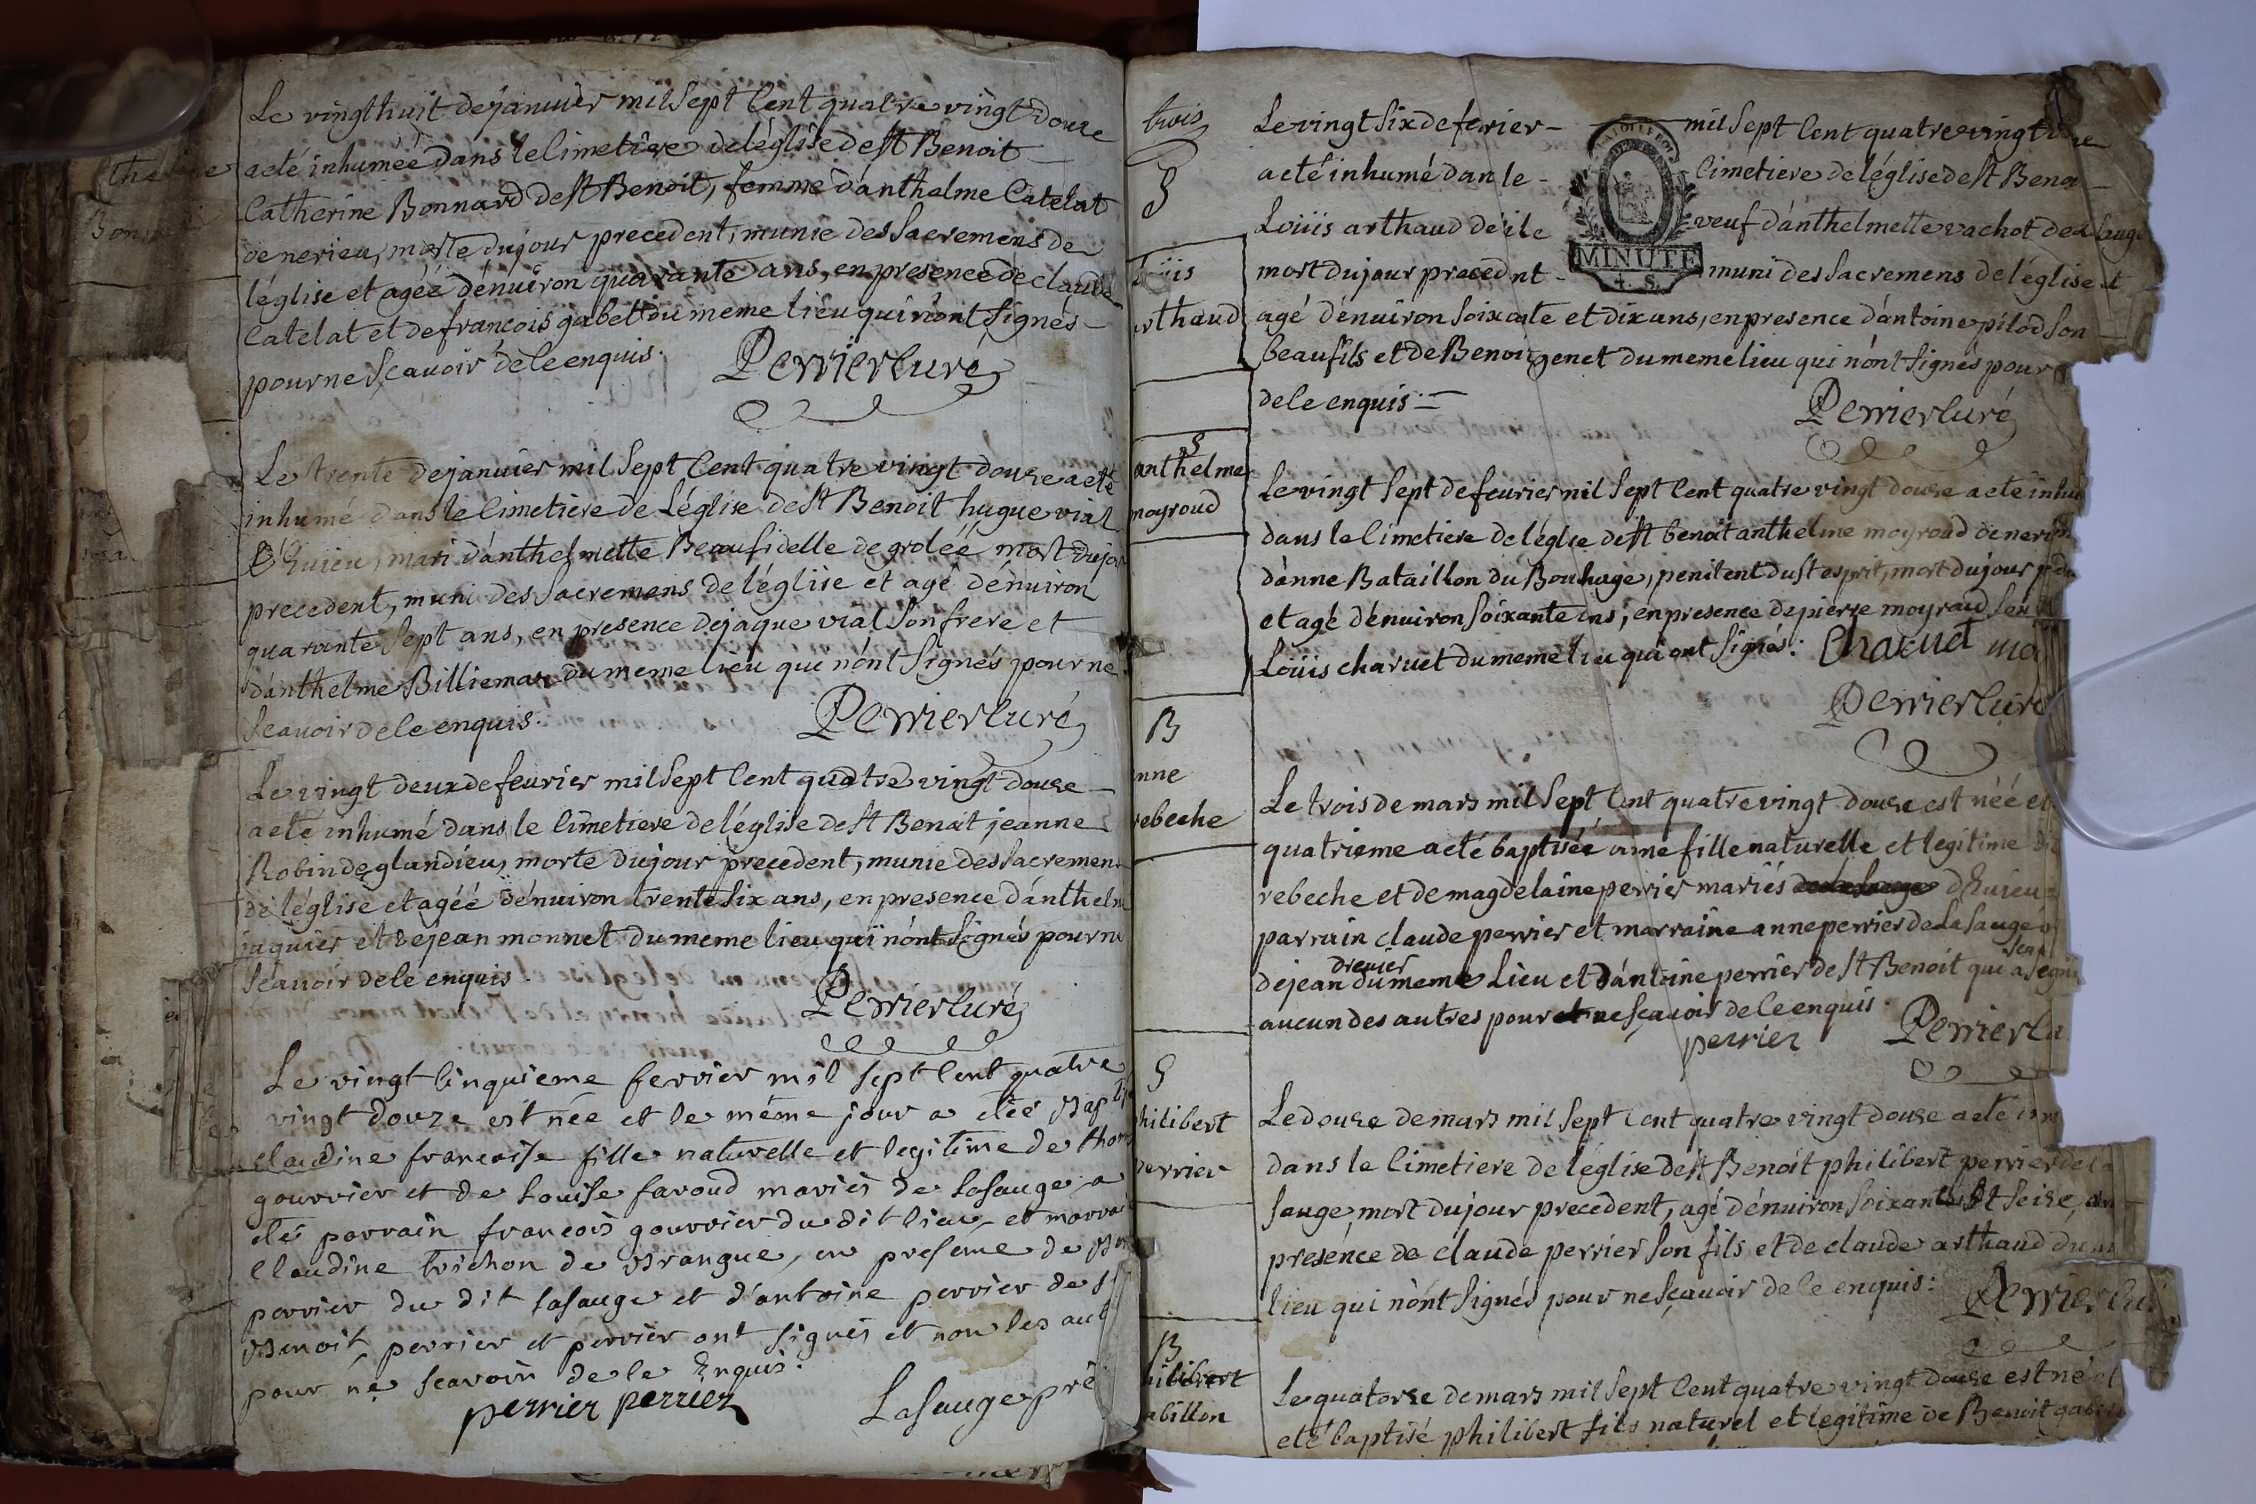 Le vingt huit de janvier mil sept cent quatre vingt douze
a eté inhumée dans le cimetiere de léglise de st Benoit
Catherine Bonnard de st Benoit, femme d'anthelme Catelat
de nerieu, morte du jour precedent, munie des sacremens de
léglise et ageé dénuiron quarante ans, en presence de claude
Catelat et de francois gabet du meme lieu qui nont signés
pour ne sçauoir de le enquis.
Perrier curé
Le trente de janvier mil sept cent quatre vingt douze a eté
inhumé dans le cimetiere de Léglise de st Benoit hugue vial
d'Evieu, mari d'anthelmette Beaufidelle de groléé mort du jour
precedent, muni des sacremens de léglise et agé dénuiron
quarante sept ans, en presence de jaque vial son frere et
d'anthelme Billiemaz du meme lieu qui nont signés pour ne
scauoir de le enquis.
Perrier curé
Le vingt deux de feurier mil sept cent quatre vingt douze
a eté inhumé dans le cimetiere de léglise de st Benoit jeanne
Robin de glandieu, morte du jour precedent, munie des sacremens
de léglise et agéé dénuiron trente six ans, en presence d'anthelme
juquier et de jean monnet du meme lieu qui nont signés pour ne
scauoir de le enquis.
Perrier curé
Le vingt cinquieme fevrier mil sept cent quatre
vingt douze est née et le même jour a etée Bapti
claudine francoise fille naturelle et legitime de thom
gourrier et de Louise faroud mariés de Lasauge, a
été parrain francois gourrier du dit lieu et marrai
Claudine trichon de Brangue, en presence de
perrier du dit Lasauge et d'antoine perrier de s
Benoit, perrier et perrier ont signés et non les aut
pour ne scavoir de le Enquis.
perrier perrier
Lasauge prê
trois
S
Loüis
arthaud
Le vingt six de fevrier mil sept cent quatre vingt douze
a eté inhumé dan le cimetiere de léglise de st Benoi
Loüis arthaud de ile veuf d'anthelmette vachot de Lasauge
MINUTE
4. S.
mort du jour precednt muni des sacremens de léglise et
agé dénuiron soixante et dix ans, en presence d'antoine pilod son
beaufils et de Benoit genet du meme lieu qui nont signés pour
de le enquis.
Perrier curé
S
anthelme
moyroud
Le vingt sept de feurier mil sept cent quatre vingt douze a eté inhu
dans le cimetiere de léglise de st benoit anthelme moyroud de nerieu
d'anne Bataillon du Bouhage, penitent du st esprit, mort du jour
et agé dénuiron soixante ans, en presence de pierre moyroud
Loüis charuet du meme lieu qui ont signés. Charuet mo
Perrier curé
B
nne
rebeche
Le trois de mars mil sept cent quatre vingt douze est néé et
quatrieme a eté baptiséé anne fille naturelle et legitime
rebeche et de magdelaine perrier mariés d'Euieu
parrain claude perrier et marraine anne perrier de Lasauge
de jean drevier du meme Lieu et d'antoine perrier de st Benoit qui a signé
aucun des autres pour ne sçauoir de le enquis.
perrier
Perrier c
S
hilibert
perrier
Le douze de mars mil sept cent quatre vingt douze a eté in
dans le cimetiere de léglise de st Benoit philibert perrier de
sauge, mort du jour precedent, agé dénuiron soixante et seize, an
presénce de claude perrier son fils et de claude arthaud du m
lieu qui nont signés pour ne sçauoir de le enquis.
Perrier cu
B
hilibert
abillon
Le quatorze de mars mil sept cent quatre vingt douze est né et
eté baptisé philibert fils naturel et legitime de Benoit gabil